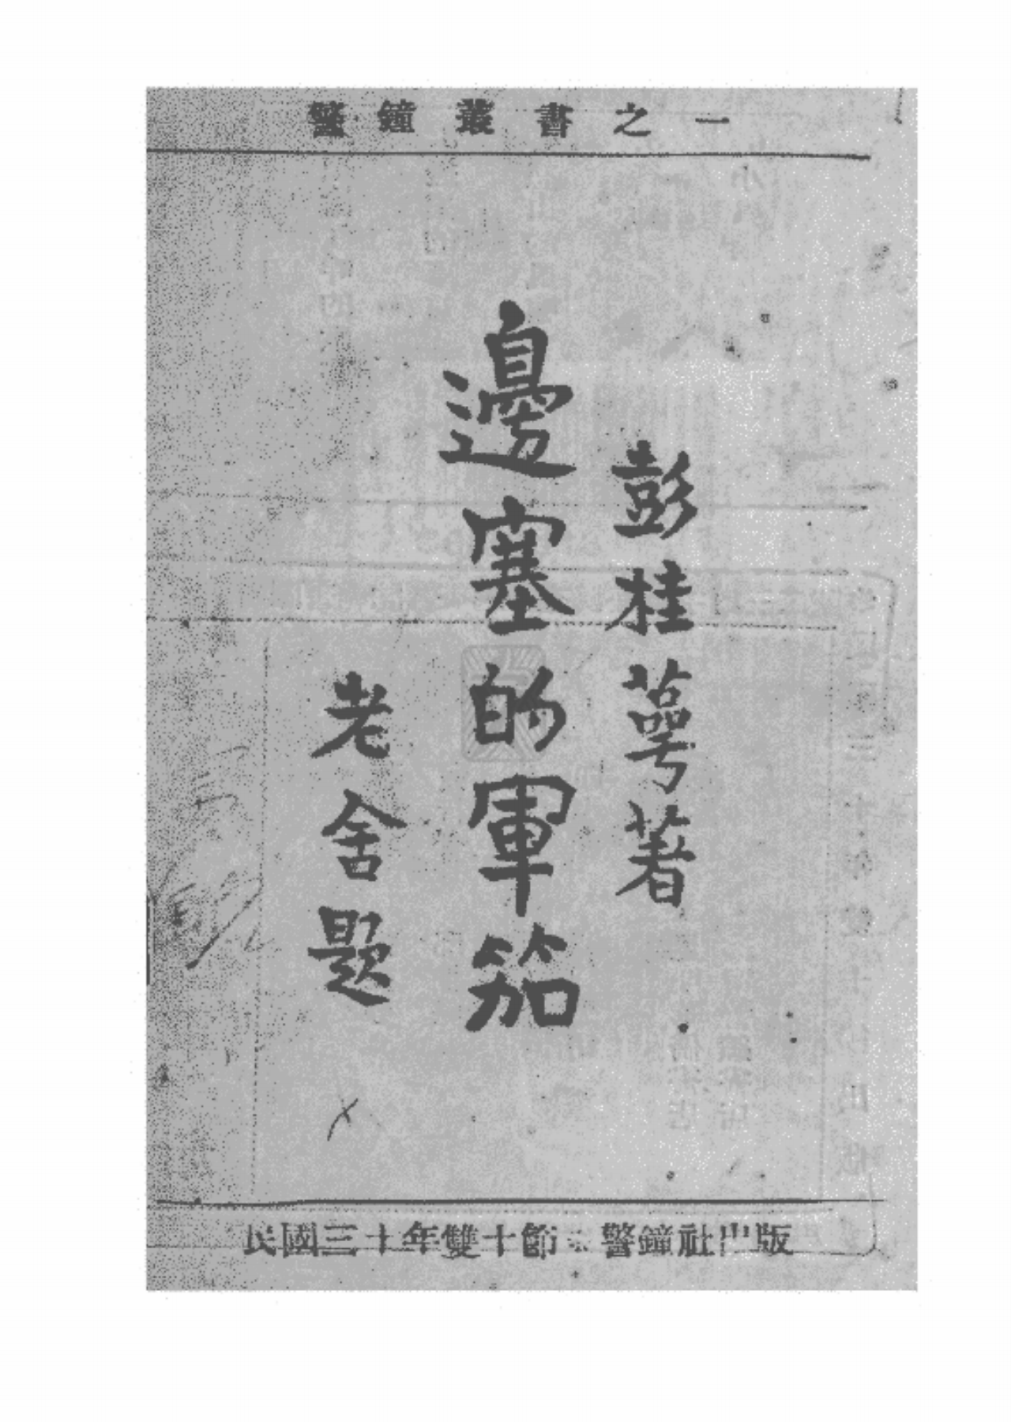 警鐘叢書之一
彭桂萼著
邊塞的軍笳
老舍題
民國三十年雙十節 警鐘社出版